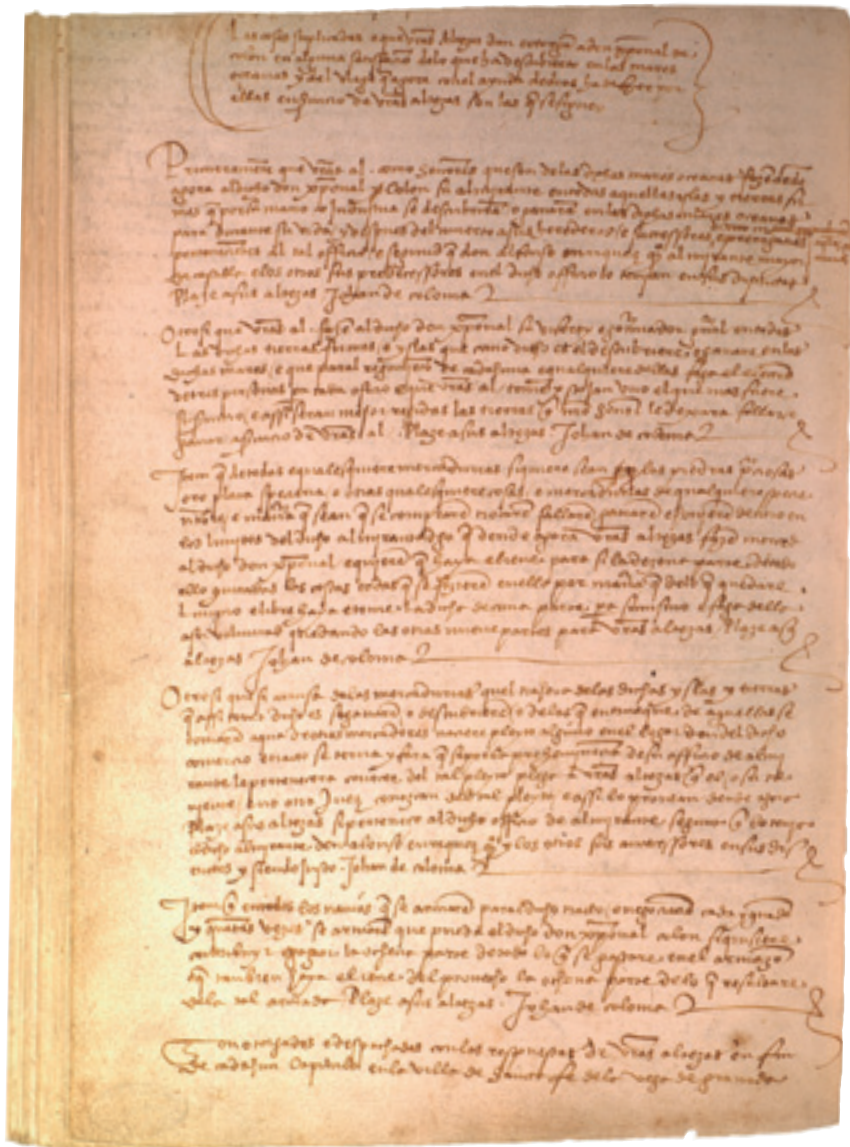 Las cosas suplicadas e que vras altezas dan e otorgan a don xpoual de
colon en alguna satisfacion delo que ha descubierto en las mares
oceanas y del viage que agora con el ayuda de dios ha de fazer por
ellas en seruicio de vras altezas son las que se siguen
Primeramente que vras al. como senores que son delas dichas mares oceanas fazen dende
agora al dicho don xpoual Colon su almirante en todas aquellas islas y tierras fir
mas que por su mano o industria se descubriran o ganaran en las dichas mares oceanas
para durante su vida y despues del muerto a sus herederos e successores
pertenecientes al tal officio e segund que don Alfonso enrriquez almirante mayor
de castilla e los otros sus predecessores en el dicho officio lo tenian en sus districtos
Plaze a sus altezas Johan de coloma
Otrosi que vras al. fazen al dicho don xpoual su visorey e gouernador general en todas
las dichas tierras firmes e yslas que como dicho es el descubriere o ganare en las
dichas mares e que paral regimiento de cada huna e qualquiere dellas faga el eleccion
de tres personas para cada oficio e que vras al. tomen y scojan vno el que mas fuere
su seruicio e assi seran mejor regidas las tierras que nro senor le dexara fallar e
ganar a seruicio de vras al. Plaze a sus altezas Johan de coloma
Item que de todas e qualesquiere mercadurias siquiere sean perlas piedras preciosas
oro plata speceria e otras qualesquiere cosas e mercadurias de qualquiere specie
nombre e manera que sean que se compraren trocaren fallaren ganaren e houieren dentro en
los limites del dicho almirantadgo que dende agora vras altezas fazen merced
al dicho don xpoual e quieren que haya e lieue para si la dezena parte de todo
ello quitadas las costas todas que se fizieren en ello por manera que delo que quedare
limpio e libre haya e tome la dicha decima parte para si mismo e faga dello
a su voluntad quedando las otras nueue partes para vras altezas Plaze a sus
altezas Johan de coloma
Otrosi que si a causa delas mercadurias quel trahera delas dichas yslas y tierras
que assi como dicho es se ganaren o descubrieren o delas que en troque de aquellas se
tomaran aqua de otros mercadores naciere pleyto alguno en el logar don del dicho
comercio e tracto se terna y fara que si por la preheminencia de su officio de almi
rante le pertenecera conocer del tal pleyto plega a vras altezas que el o su te
niente e no otro Juez conozcan del tal pleyto e assi lo prouean dende agora
Plaze a sus altezas si pertenece al dicho officio de almirante segunt que lo tenia
el dicho almirante don alonso enrriquez y los otros sus antecessores en sus dis
trictos y siendo justo Johan de coloma
Item que en todos los nauios que se armaren paral dicho tracto e negociacion cada y quando
y quantas vezes se armaren que pueda el dicho don xpoual colon si quisiere
contribuyr e pagar la ochena parte de todo lo que se gastare en el armazon
e que tambien haya e lieue del prouecho la ochena parte delo que resultare
dela tal armada Plaze a sus altezas Johan de coloma
Son otorgados e despachados con las respuestas de vras altezas en fin
de cada hun Capitulo en la villa de Santa fe dela vega de granada